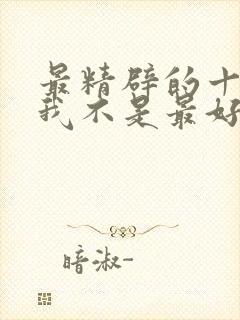 最精辟的十
我不是最好
暗淑-